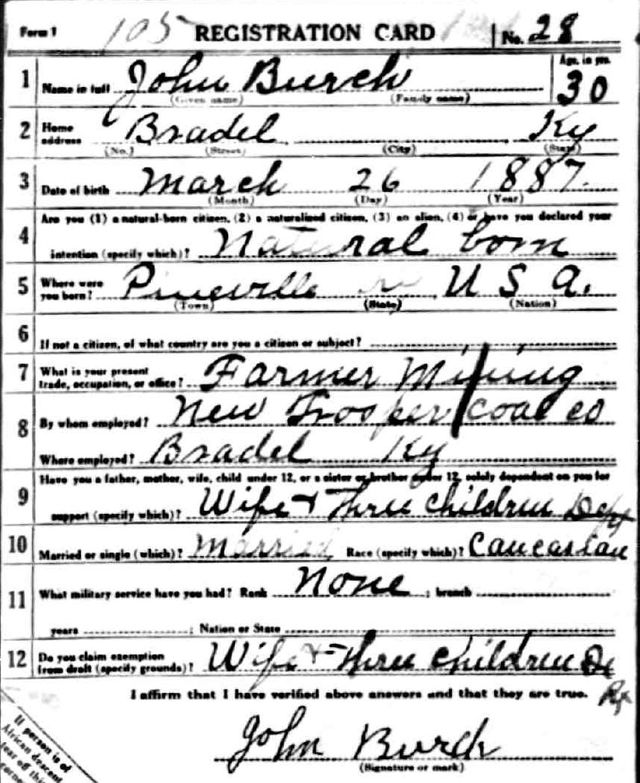 Form 1 105 REGISTRATION CARD No. 28
1 Name in full John Burch Age, in yrs. 30
(Given name) (Family name)
2 Home address Bradel Ky
(No.) (Street) (City) (State)
3 Date of birth March 26 1887.
(Month) (Day) (Year)
Are you (1) a natural-born citizen, (2) a naturalized citizen, (3) an alien, (4) or have you declared your
4 intention (specify which)? Natural born
5 Where were you born? Pineville U S A.
(Town) (State) (Nation)
6 If not a citizen, of what country are you a citizen or subject?
7 What is your present trade, occupation, or office? Farmer Mining
8 By whom employed? New Trosper Coal Co
Where employed? Bradel Ky
Have you a father, mother, wife, child under 12, or a sister or brother under 12, solely dependent on you for
9 support (specify which)? Wife + Three Children Dept
10 Married or single (which)? Married Race (specify which)? Caucasian
11 What military service have you had? Rank None ; branch
years ; Nation or State
12 Do you claim exemption from draft (specify grounds)? Wife + Three Children De
I affirm that I have verified above answers and that they are true.
John Burch
(Signature or mark)
If person is of
African descent
tear off this